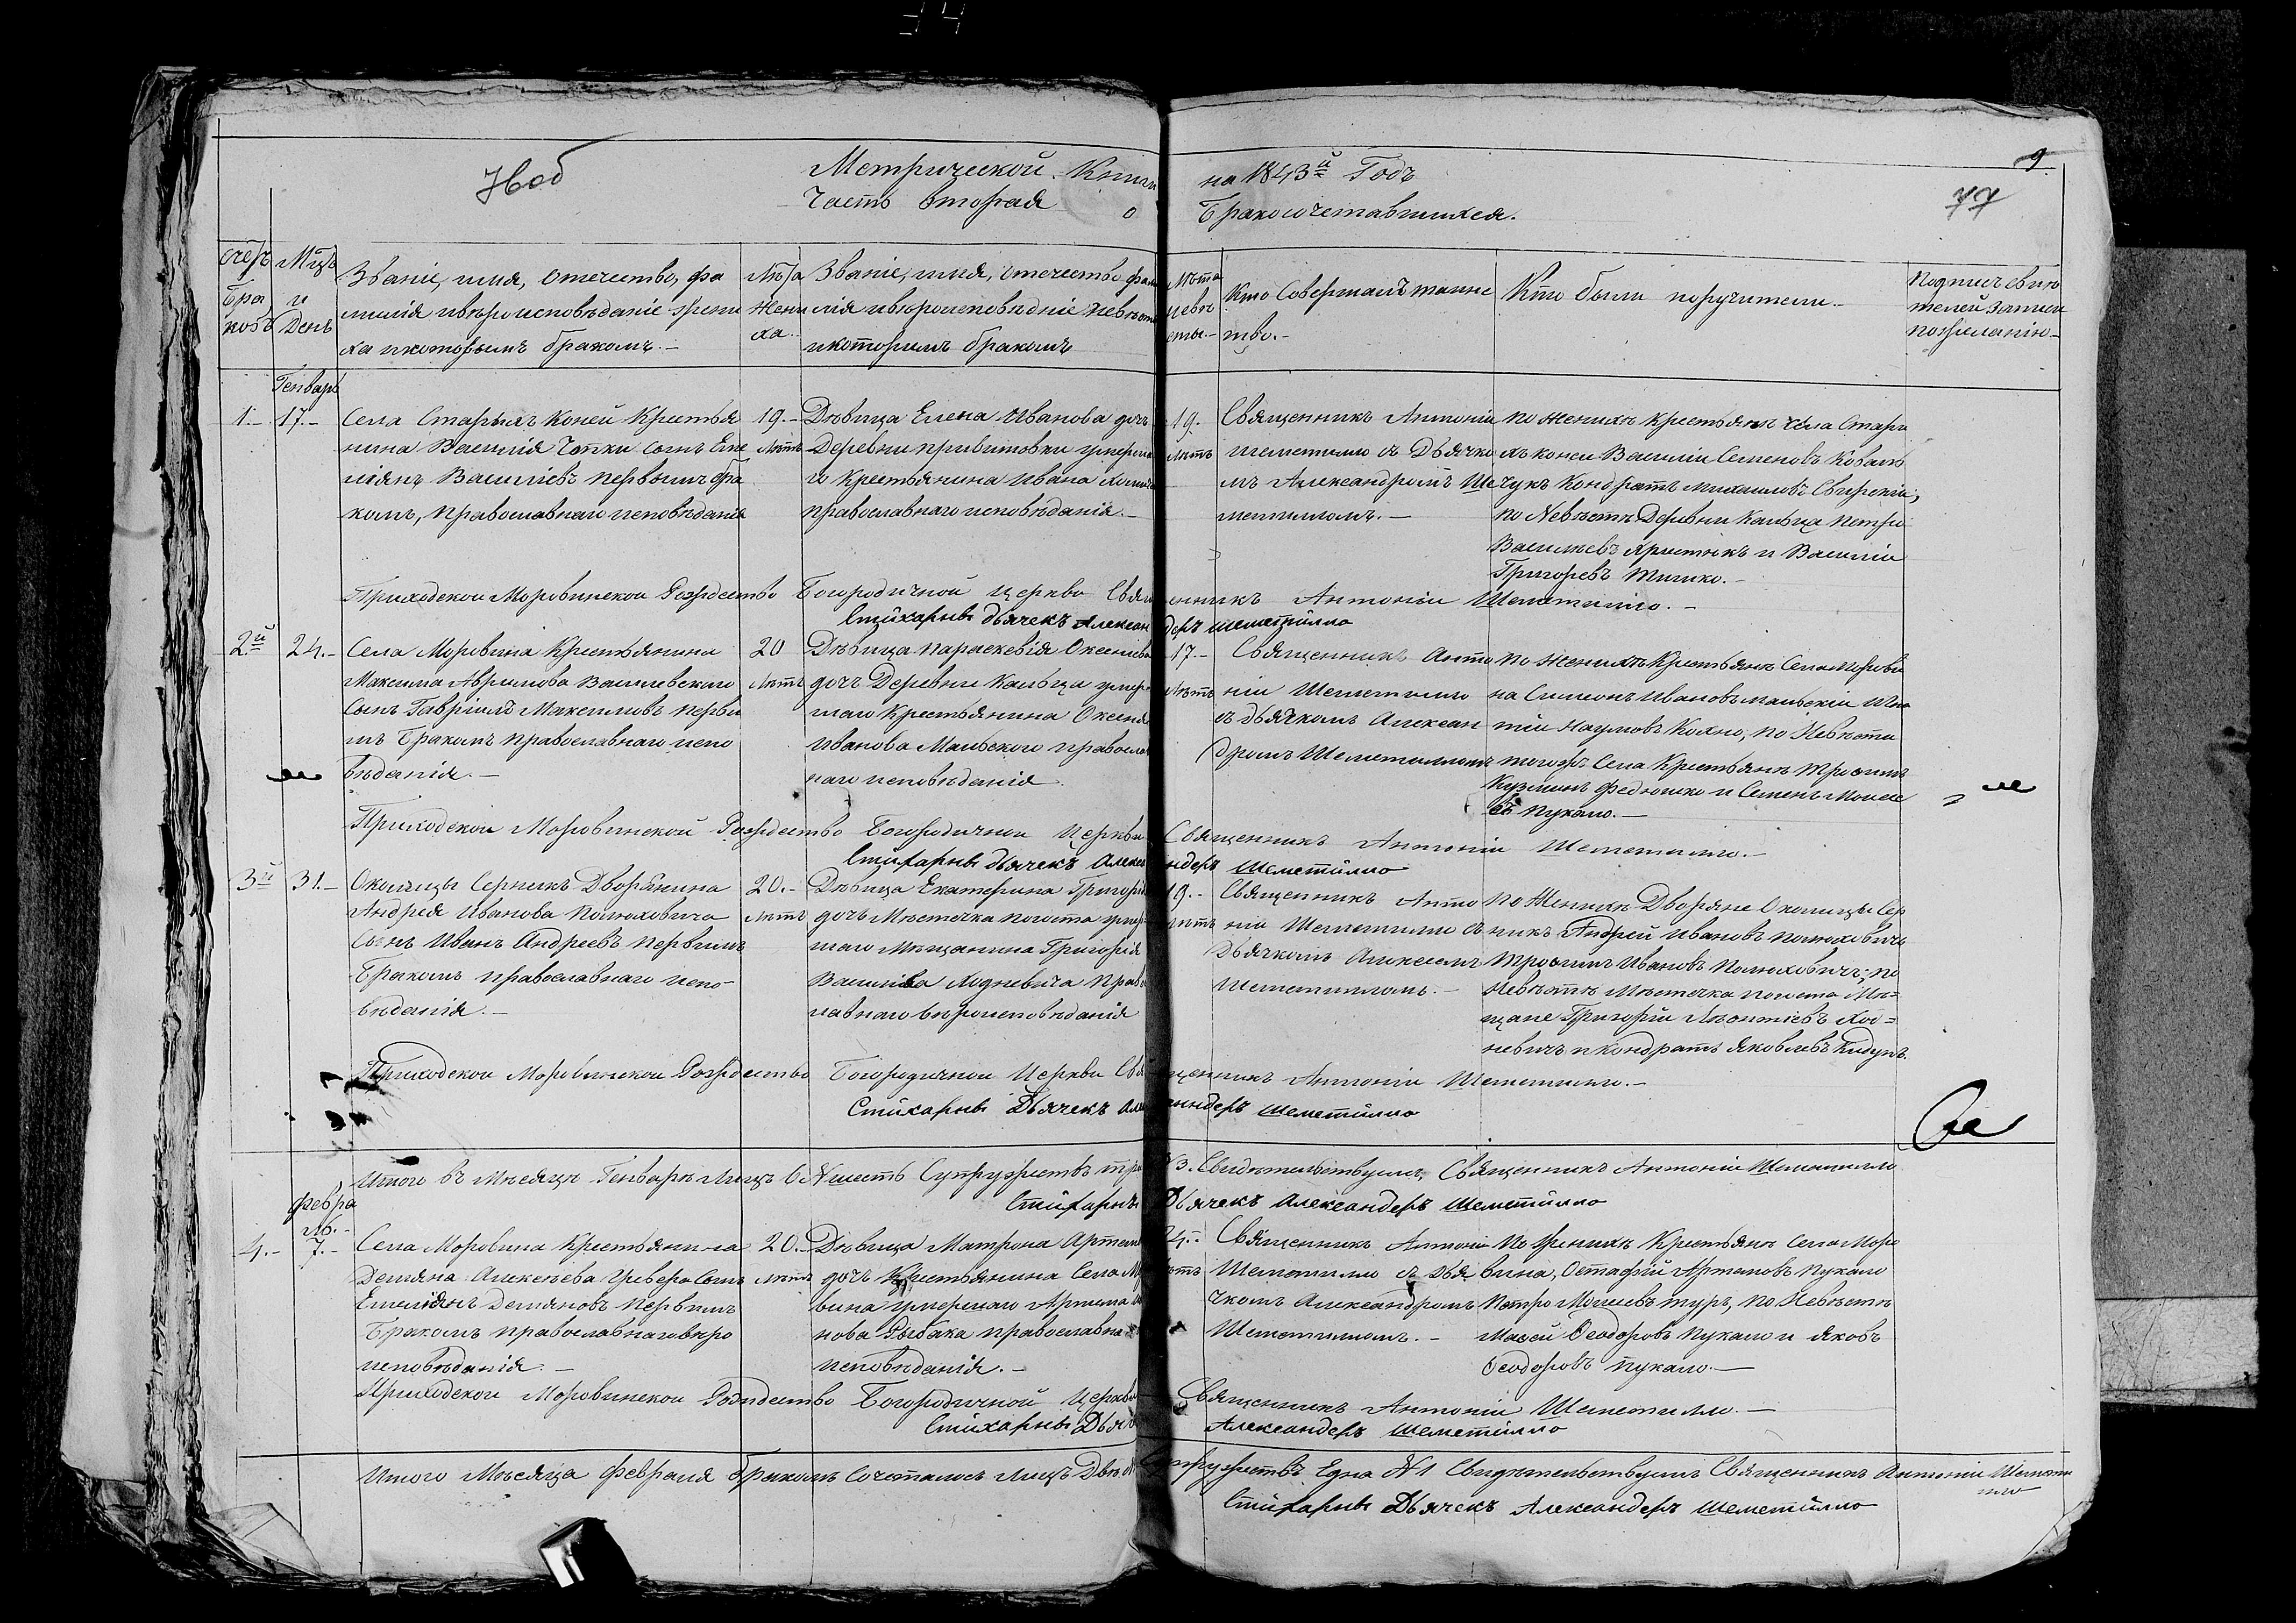 Метрической Книги на 1843й Годъ
Часть вторая о Бракосочетавшихся.
9
77
Счетъ Браковъ
Мцъ и День
Званіе, имя, отечество, фа
милія и вѣроисповѣданіе жени
ха и которымъ бракомъ. —
Лѣта Жени ха.
Званіе, имя, отечество фами
лія и вѣроисповѣдніе невѣсты
и которымъ бракомъ
Лѣта невѣ сты. —
Кто Совершалъ таинс
тво. —
Кто были поручители. —
Подпись свидѣ
телей записи
по желанію. —
Генварь
1. — 17. —
Села Старыхъ Коней Крестья
нина Василія сынъ Еме
ліянъ Василіевъ первымъ бра
комъ, православнаго исповѣданія
19. — Лѣтъ
Дѣвица Елена Иванова дочь
Деревни умерша
го Крестьянина Ивана
православнаго исповѣданія. —
19. Лѣтъ
Священникъ Антоній
Шеметилло съ Дьячко
мъ Александромъ Ше
метилломъ. —
по Женихѣ Крестьяне Села Стары
хъ коней Василій Семеновъ Коваль
чукъ Кондратъ Михаиловъ Свирскій,
по Невѣстѣ Деревни Кальца Петръ
Васильевъ и Василій
Григорьевъ
Приходской Моровинской Рождество Богородичной церкви Священникъ Антоній Шеметилло. —
Стихарны Дьячекъ Александеръ Шеметилло
2й 24. —
Села Моровина Крестьянина
Максима Авраамова Василевскаго
Сынъ Гавріилъ Максимовъ первы
мъ Бракомъ православнаго испо
вѣданія. —
20 Лѣтъ
Дѣвица Параскевія Оксеніева
дочь Деревни Кальца умер
шаго Крестьянина Оксенія
Иванова Мальскаго православ
наго исповѣданія.
17. — Лѣтъ
Священникъ Анто
ній Шеметилло
съ дьячкомъ Алексан
дромъ Шеметилломъ
по Женихѣ Крестьяне Села Морови
на Симеонъ Ивановъ Мальскій Игна
тій Наумовъ Кохно, по Невѣсти
тогожъ Села Крестьяне Трофимъ
Кузминъ Федюшко и Семенъ Моисе
евъ Пукало. —
Приходской Моровинской Рождество Богородичной Церкви Священникъ Антоній Шеметилло. —
Стихарны Дьячекъ Александеръ Шеметилло
3й 31. —
Околицы Серникъ Дворянина
Андрея Иванова Полюховича
Сынъ Иванъ Андреевъ первымъ
Бракомъ православнаго испо-
вѣданія. —
20. — Лѣтъ
Дѣвица Екатерина Григорі
дочь Мѣстечка Погоста умер=
шаго Мѣщанина Григорія
Василіева Ходневича Право
лавнаго вѣроисповѣданія
19. — Лѣтъ
Священникъ Анто
ній Шеметилло съ
Дьячкомъ Алексан
Шеметилломъ. —
по Женихѣ Дворяне Околицы Сер
никъ Андрей Ивановъ Полюховичъ
Трофимъ Ивановъ Полюховичъ; по
Невѣстѣ Мѣстечка Погоста Мѣ=
щане Григорій Леонтіевъ Ход=
невичъ и Кондратъ Яковлевъ
Приходской Моровинской Рождество Богородичной Церкви Священникъ Антоній Шеметилло. —
Стихарны Дьячекъ Александеръ Шеметилло
Итого въ Мѣсяцѣ Генварѣ Лицъ 6. Шесть Супружествъ три №3. Свидѣтельствуемъ, Священникъ Антоній Шеметилло
Стихарны Дьячекъ Александеръ Шеметилло
Февра
ль. —
4. — 7. —
Села Моровина Крестьянина
Демяна Алексѣева Сынъ
Емеліянъ Демяновъ Первымъ
Бракомъ православнаго вѣро
исповѣданія. —
20. — Лѣтъ
Дѣвица Матрона Артем
дочь Крестьянина Села Мо
вина умершаго Артема
нова Рыбака православна
исповѣданія. —
Священникъ Антоній
Шеметилло съ Дья
чкомъ Александромъ
Шеметилломъ. —
По Женихѣ Крестьяне Села Моро
вина, Остафій Артемовъ Пукало
Петро Моисеевъ Туръ, по Невѣстѣ
Феодоровъ Пукало и Яковъ
Феодоровъ Пукало. —
Приходской Моровинской Рождество Богородичной Церкви Священникъ Антоній Шеметилло. —
Стихарны Дьяч Александеръ Шеметилло
Итого Мѣсяца Февраля бракомъ Сочеталось Лицъ Двѣ Супружествъ Едно №1 Свидѣтельствуемъ Священникъ Антоній Шемети
лло
Стихарны Дьячекъ Александеръ Шеметилло